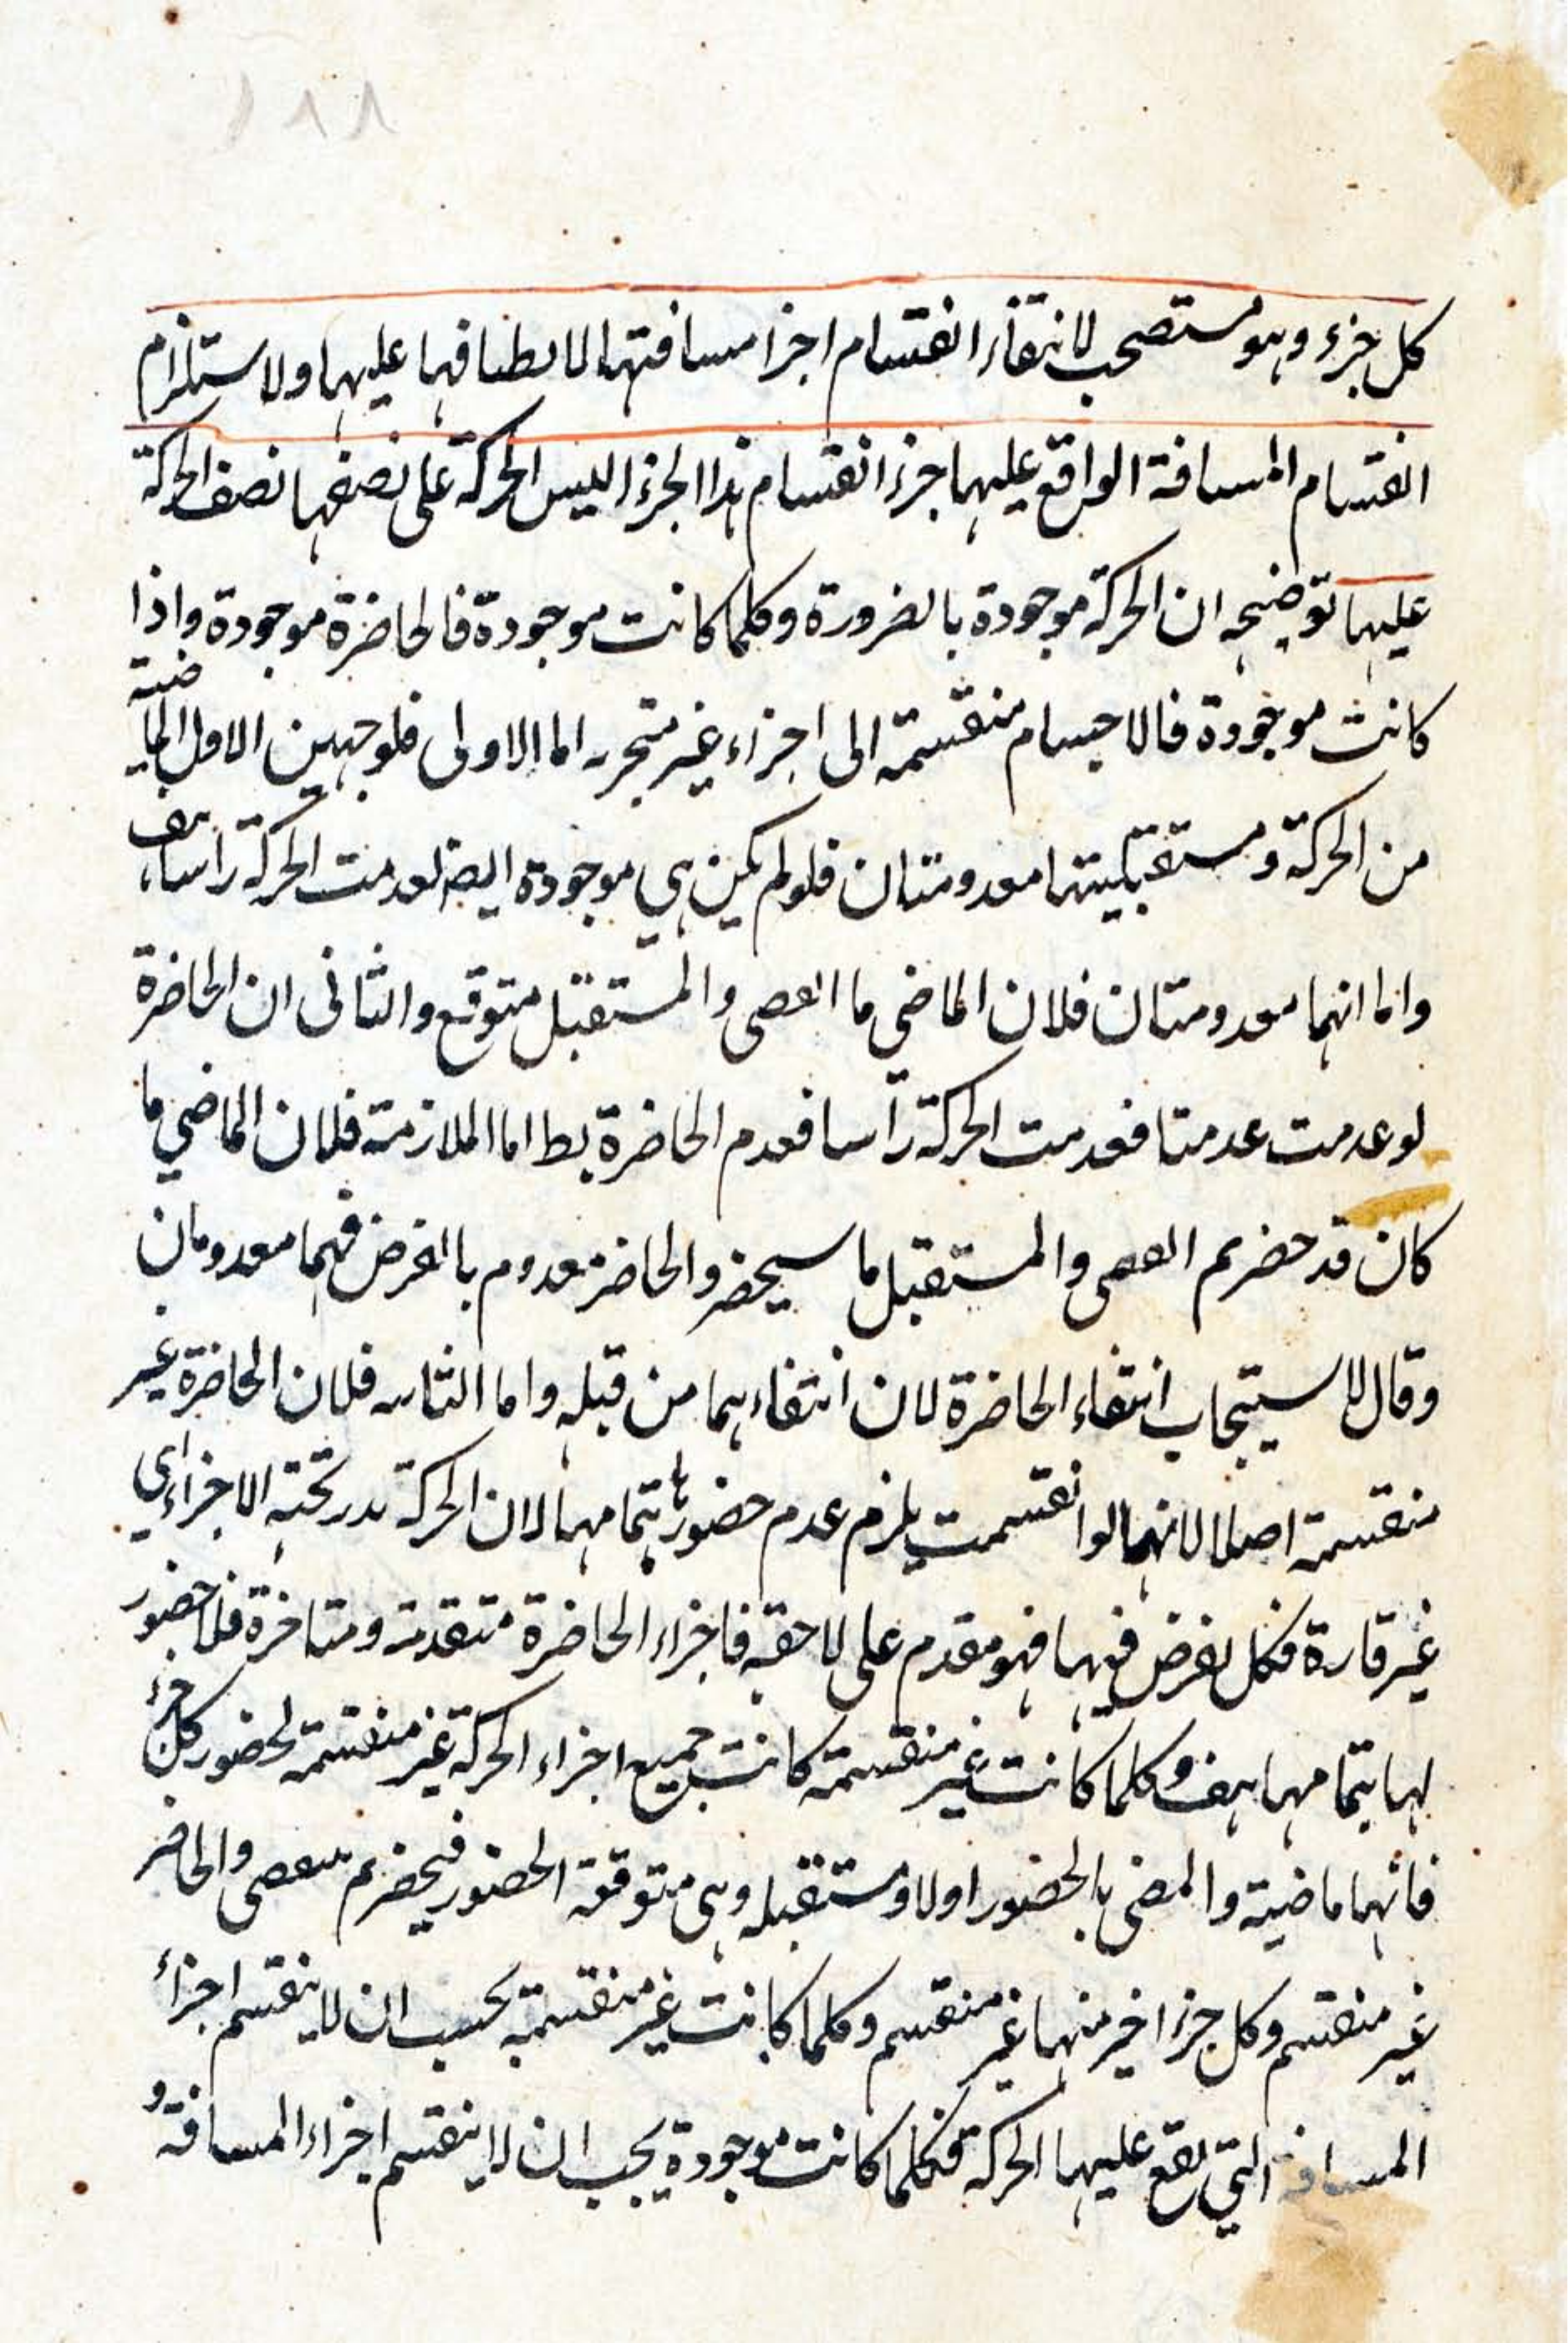 ١٨٨
كل جزء وهو مستصحب لانتفاء انقسام اجزا مسافتها لانطباقها عليها ولاستلزام
انقسام المسافة الواقع عليها جزء انقسام هذا الجزء اليس الحركة على نصفها نصف الحركة
عليها توضيحه ان الحركة موجودة بالضرورة وكلما كانت موجودة فالحاضرة موجودة واذا
كانت موجودة فالاجسام منقسمة الى اجزاء غير متجزيه اما الاولى فلوجهين الاول الماضية
من الحركة ومستقبليتها معدومتان فلو لم يكن هي موجودة ايضه لعدمت الحركة راسا، هف
واما انهما معدومتان فلان الماضي ما انقصى والمستقبل متوقع والثانى ان الحاضرة
لو عدمت عدمتا فعدمت الحركة رآسا فعدم الحاضرة بط اما الملازمة فلان الماضي ما
كان قد حضر ثم انقصى والمستقبل ما سيحضر والحاضر معدوم بالفرض فهما معدومان
وقال لاستيجاب انتفاء الحاضرة لان انتفاءهما من قبله واما الثانيه فلان الحاضرة غير
منقسمة اصلا لانها لو انقسمت يلزم عدم حضورها بتمامها لان الحركة تدريجية الاجزاء اي
غير قارة فكل يفرض فيها فهو مقدم على لاحقه فاجزاء الحاضرة متقدمة ومتاخرة فلا حضور
لها بتمامها هف وكلما كانت غير منقسمة كانت جميع اجزاء الحركة غير منقسمة لحضور كل جزء
فانها ماضية والمضى بالحضور اولا ومستقبله وهى متوقعة الحضور فيحضر ثم ينقصى والحاضر
غير منقسم وكل جزء اخير منها غير منقسم وكلما كانت غير منقسمة يجب ان لا ينقسم اجزاء
المسافة التي يقع عليها الحركة فكلما كانت موجودة يجب ان لا ينقسم اجزاء المسافة و